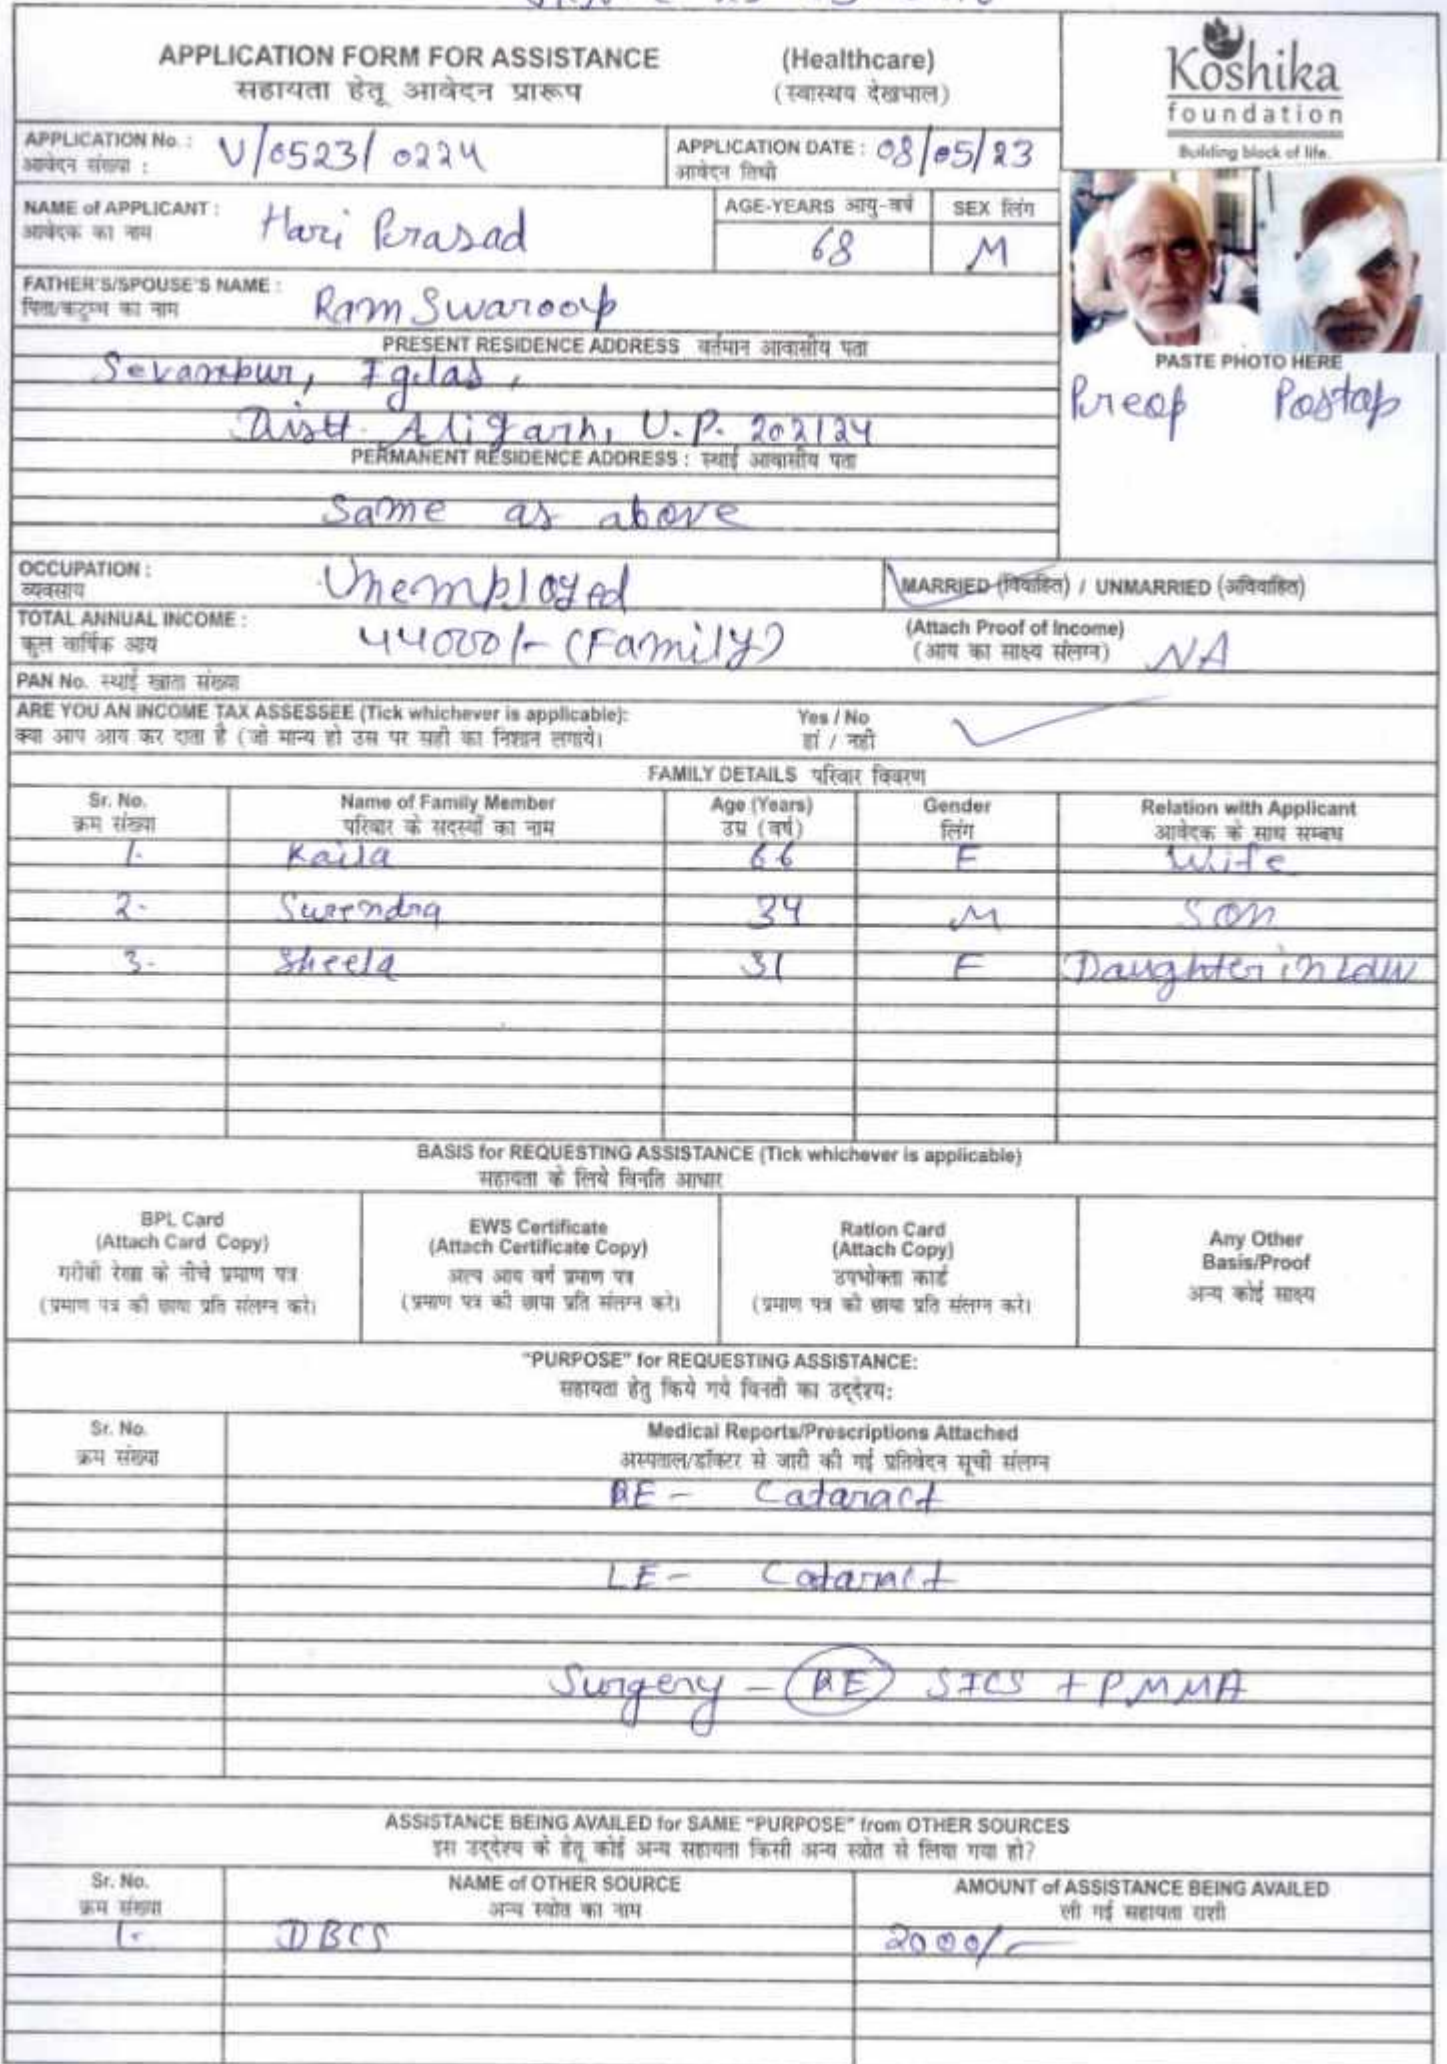 APPLICATION FORM FOR ASSISTANCE (Healthcare)
सहायता हेतू आवेदन प्रारूप (स्वास्थय देखभाल)
Koshika
foundation
Building block of life.
APPLICATION No. : V/0523/0224 APPLICATION DATE : 08/05/23
आवेदन संख्या : आवेदन तिथी
NAME of APPLICANT : Hari Prasad AGE-YEARS आयु-वर्ष SEX लिंग
आवेदक का नाम 68 M
FATHER'S/SPOUSE'S NAME : Ram Swaroop
पिता/कटुम्भ का नाम
PRESENT RESIDENCE ADDRESS वर्तमान आवासीय पता
Sevanpur, Iglas,
Distt. Aligarh, U.P. 202124
PERMANENT RESIDENCE ADDRESS : स्थाई आवासीय पता
Same as above
PASTE PHOTO HERE
Preop Postop
OCCUPATION : Unemployed MARRIED (विवाहित) / UNMARRIED (अविवाहित)
व्यवसाय
TOTAL ANNUAL INCOME : 44000/- (Family) (Attach Proof of Income)
कुल वार्षिक आय (आय का साक्ष्य संलग्न) NA
PAN No. स्थाई खाता संख्या
ARE YOU AN INCOME TAX ASSESSEE (Tick whichever is applicable): Yes / No
क्या आप आय कर दाता है (जो मान्य हो उस पर सही का निशान लगाये। हां / नही
FAMILY DETAILS परिवार विवरण
Sr. No. Name of Family Member Age (Years) Gender Relation with Applicant
क्रम संख्या परिवार के सदस्यों का नाम उम्र (वर्ष) लिंग आवेदक के साथ सम्बध
1. Kaila 66 F Wife
2- Surendra 34 M Son
3- Sheela 31 F Daughter in Law
BASIS for REQUESTING ASSISTANCE (Tick whichever is applicable)
सहायता के लिये विनति आधार
BPL Card
(Attach Card Copy)
गरीबी रेखा के नीचे प्रमाण पत्र
(प्रमाण पत्र की छाया प्रति संलग्न करे।
EWS Certificate
(Attach Certificate Copy)
अल्प आय वर्ग प्रमाण पत्र
(प्रमाण पत्र की छाया प्रति संलग्न करे।
Ration Card
(Attach Copy)
उपभोक्ता कार्ड
(प्रमाण पत्र की छाया प्रति संलग्न करे।
Any Other
Basis/Proof
अन्य कोई साक्ष्य
"PURPOSE" for REQUESTING ASSISTANCE:
सहायता हेतु किये गये विनती का उद्देश्य:
Sr. No. Medical Reports/Prescriptions Attached
क्रम संख्या अस्पताल/डॉक्टर से जारी की गई प्रतिवेदन सूची संलग्न
RE - Cataract
LE - Cataract
Surgery - RE SICS + PMMA
ASSISTANCE BEING AVAILED for SAME "PURPOSE" from OTHER SOURCES
इस उद्देश्य के हेतू कोई अन्य सहायता किसी अन्य स्त्रोत से लिया गया हो?
Sr. No. NAME of OTHER SOURCE AMOUNT of ASSISTANCE BEING AVAILED
क्रम संख्या अन्य स्त्रोत का नाम ली गई सहायता राशी
1- DBCS 2000/-